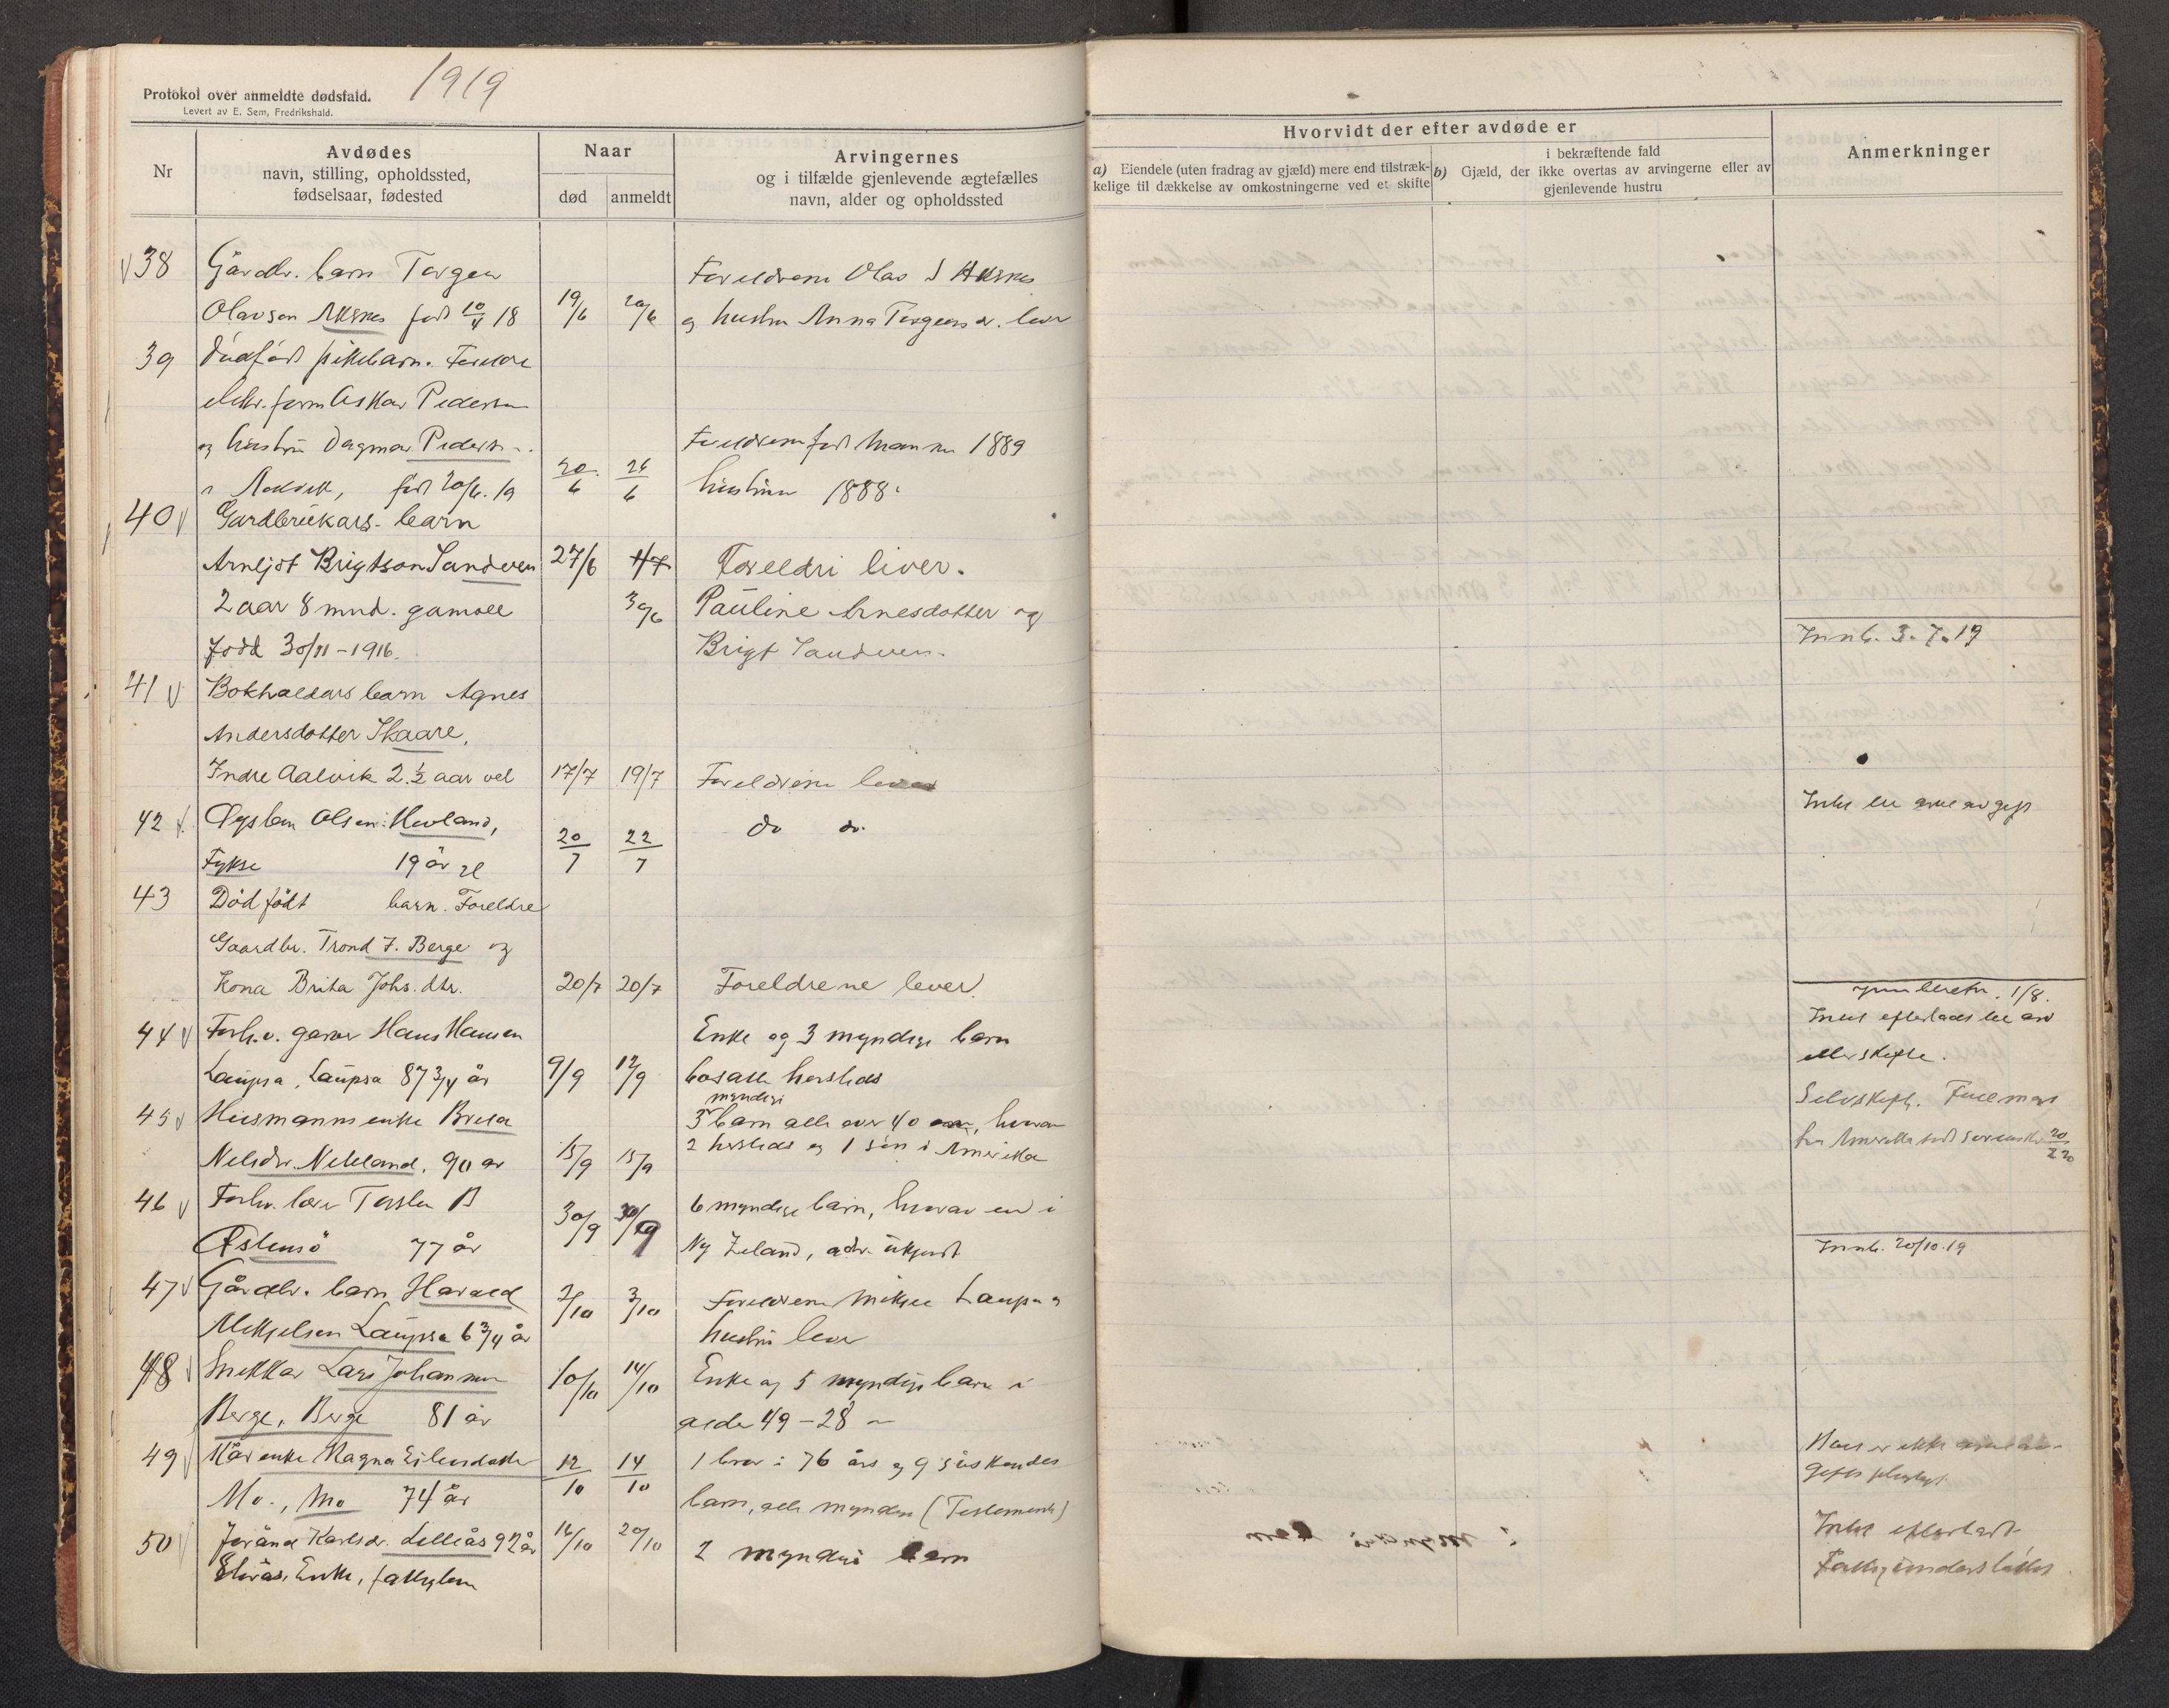 Protokol over anmeldte dødsfald.
1919
Levert av E. Sem, Fredrikshald.
Nr
Avdødes
navn, stilling, opholdssted,
fødselsaar, fødested
Naar
død
anmeldt
Arvingernes
og i tilfælde gjenlevende ægtefælles
navn, alder og opholdssted
Hvorvidt der efter avdøde er
a) Eiendele (uten fradrag av gjæld) mere end tilstræk-
kelige til dækkelse av omkostningerne ved et skifte
i bekræftende fald
b) Gjæld, der ikke overtas av arvingerne eller av
gjenlevende hustru
Anmerkninger
38 Gårdbr. barn Torgeir
Olavson Aksnes født 10/4 18 19/6 20/6
Foreldrene Olav J Aksnes
og hustru Anna Torgeirsdr. lever
39 Dødfødt pikebarn. Foreldre
elektr. form Oskar Pedersen
og hustru Dagmar Pedersen
i Aalvik, født 20/6. 19 20/6 26/6
Foreldrene født Mannen 1889
hustruen 1888.
40 Gardbrukars- barn
Arnljot Brigtson Sandven 27/6 1/7
2 aar 8 mnd. gamall 30/6
Født 30/11-1916.
Foreldri liver.
Pauline Arnesdotter og
Brigt Sandven.
Innb. 3-7-19
41 Bokhaldars barn Agnes
Andersdotter Skaare,
Indre Aalvik 2 1/2 aar vel 17/7 19/7 Foreldrene lever
42 Øystein Olsen Hovland, 20/7 22/7 do do.
Fykse 19 år
Intet til arveavgift
43 Dødfødt barn. Foreldre
Gaardbr. Trond J. Berge og
Kona Brita Johs. dtr. 20/7 20/7 Foreldrene lever.
innberetn. 1/8.
44 Forh.v. garver Hans Hansen
Laupsa, Laupsa 87 3/4 år 9/9 12/9
Enke og 3 myndige barn
bosatte hersteds
Intet efterladt til arv
eller skifte.
45 Husmanns enke Brita
Nelsdr. Neteland. 90 år 15/9 15/9
myndige
3 barn alle over 40 , hvorav
2 hersteds og 1 søn i Amerika
Selvskifte. Fullmagt
fra Amerika
46 Forhv. lærer Torstein B
Østensø 77 år 30/9 30/9
6 myndige barn, hvorav en i
Ny Zeland, adr. ukjendt
Innb. 20/10.19
47 Gårdbr. barn Harald
Mikkjelsen Laupsa 6 3/4 år 2/10 3/10
Foreldrene Mikkjel Laupsa og
hustru lever
48 Snekkar Lars Johannessen
Berge, Berge 81 år 10/10 14/10
Enke og 5 myndige barn i
alder 49-28
49 Kårenke Magna Eilivsdotter
Mo., Mo 74 år 12/10 14/10
1 bror i 76 års og 9 søskendes
barn, alle myndige (Testamente)
Boet er ikke arveav-
gifts pligtigt
50 Jøråna Karlsdr. Lilleås 92 år 16/10 20/10
Enke, fattiglem
2 myndige barn
Intet efterladt
Fattigunderstøttet